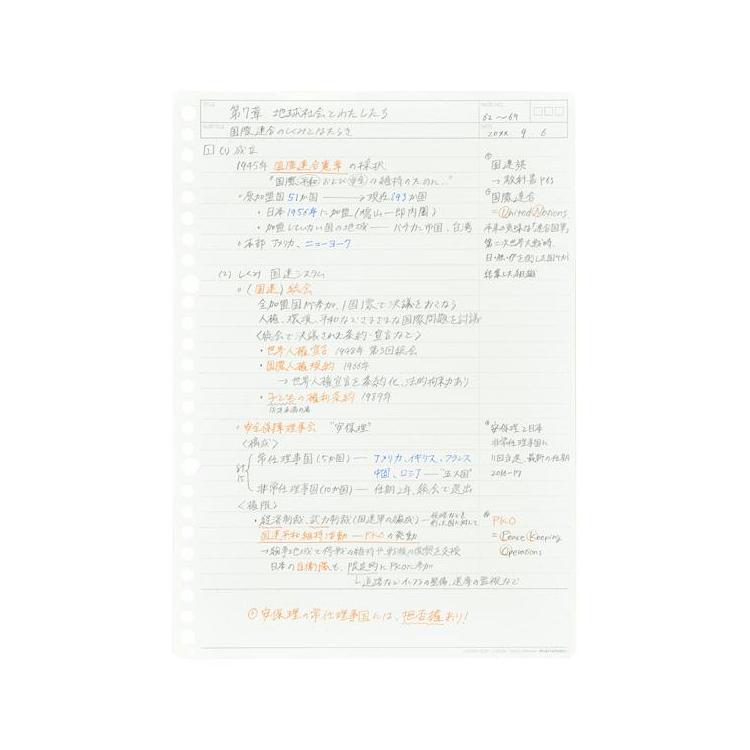 TITLE 第7章 地球社会とわたしたち
PAGE NO. 62〜69
SUBTITLE 国際連合のしくみとはたらき
DATE 20XX 9. 6
1 (1) 成立
1945年 国際連合憲章 の採択
"国際平和および安全の維持のために.."
原加盟国51か国 → 現在193か国
・日本 1956年に加盟(鳩山一郎内閣)
・加盟していない国の地域 ― バチカン市国、台湾
本部 アメリカ、ニューヨーク
国連旗
→教科書P65
国際連合
=United Nations
第二次世界大戦時、
(2) しくみ 国連システム
(国連)総会
全加盟国が参加、1国1票で決議をおこなう
人権、環境、平和などさまざまな国際問題を討議
〈総会で決議された条約・宣言など〉
・世界人権宣言 1948年 第3回総会
・国際人権規約 1966年
→世界人権宣言を条約化、法的拘束力あり
・子どもの権利条約 1989年
18才未満の
安全保障理事会 "安保理"
〈構成〉
常任理事国(5か国) ― アメリカ、イギリス、フランス
中国、ロシア ― "五大国"
非常任理事国(10か国) ― 任期2年、総会で選出
〈権限〉
・経済制裁、武力制裁(国連軍の編成)
国連平和維持活動 ― PKOの発動
→紛争地域で停戦の維持や
日本の自衛隊も、限定的にPKOに参加
道路などインフラの整備、選挙の監視など
安保理と日本
非常任理事国に
11回当選、最新の任期
2016-17
PKO
=Peace Keeping
Operations
安保理の常任理事国には、拒否権あり!